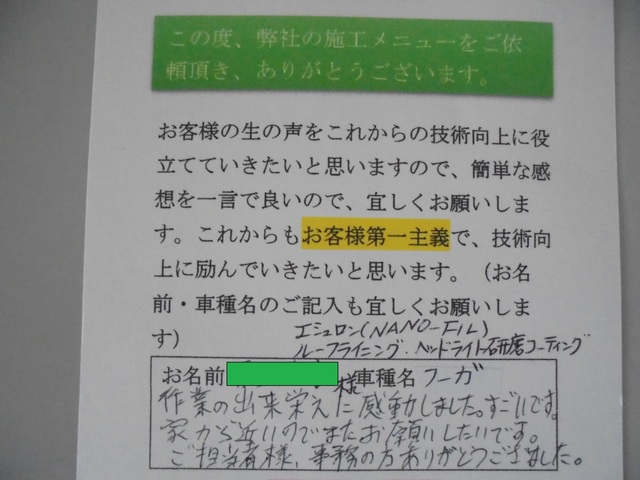 この度、弊社の施工メニューをご依
頼頂き、ありがとうございます。
お客様の生の声をこれからの技術向上に役
立てていきたいと思いますので、簡単な感
想を一言で良いので、宜しくお願いしま
す。これからもお客様第一主義で、技術向
上に励んでいきたいと思います。（お名
前・車種名のご記入も宜しくお願いしま
す）
エシュロン(NANO-FIL)
ルーフライニング・ヘッドライト研磨コーティング
お名前 様 車種名 フーガ
作業の出来栄えに感動しました。すごいです。
家から近いのでまたお願いしたいです。
ご担当者様、事務の方ありがとうございました。